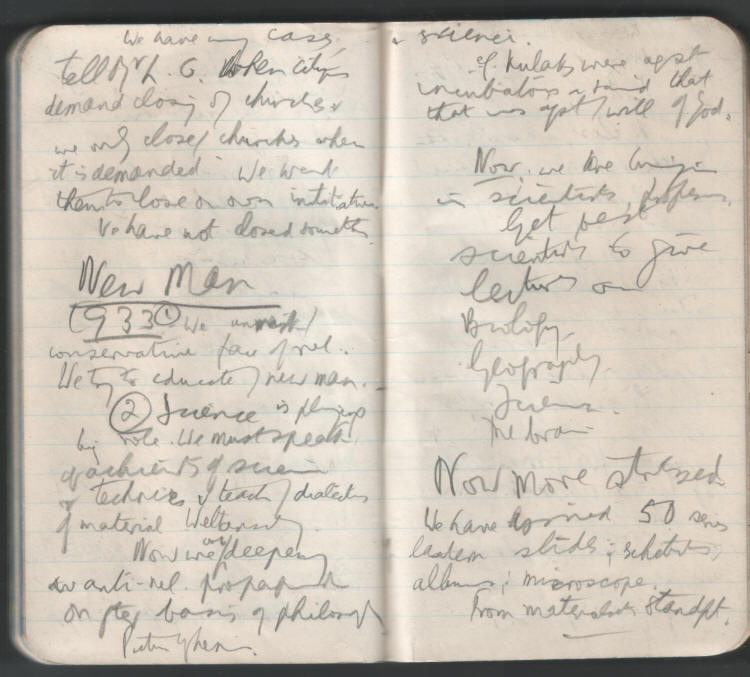 We have many cases
tell by L. G. When citizens
demand closing of churches &
we only close churches when
it is demanded. We want
them to close on own initiative.
We have not closed
New Man
1933 ① We
conservative face of rel.
We try to educate new man.
② Science is playing
big role. We must speak
of achievts of science
& technics & teach dialectics
of material
Now we are deepening
anti-rel. propaganda
on basis of philosophy
science.
e.g. kulaks were agst
incubators & said that
that was agst will of God.
Now, we are bringing
in scientists, professors.
Get best
scientists to give
lectures on
Biology
Geography
Science
The brain
Now more stressed
We have 50 series
lantern slides; sketches;
albums; microscope.
From materialist standpt.